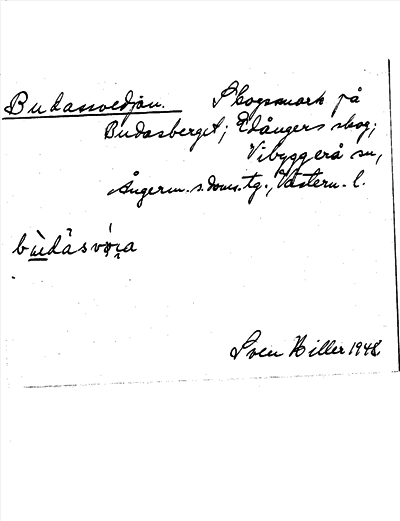 Budassvedjan. Skogsmark på
Budasberget; Edångers skog;
Vibyggerå sn,
Ångerm. s. doms. tg., Västern. l.
bùdàsvø̀ɪa
Sven Hiller 1948